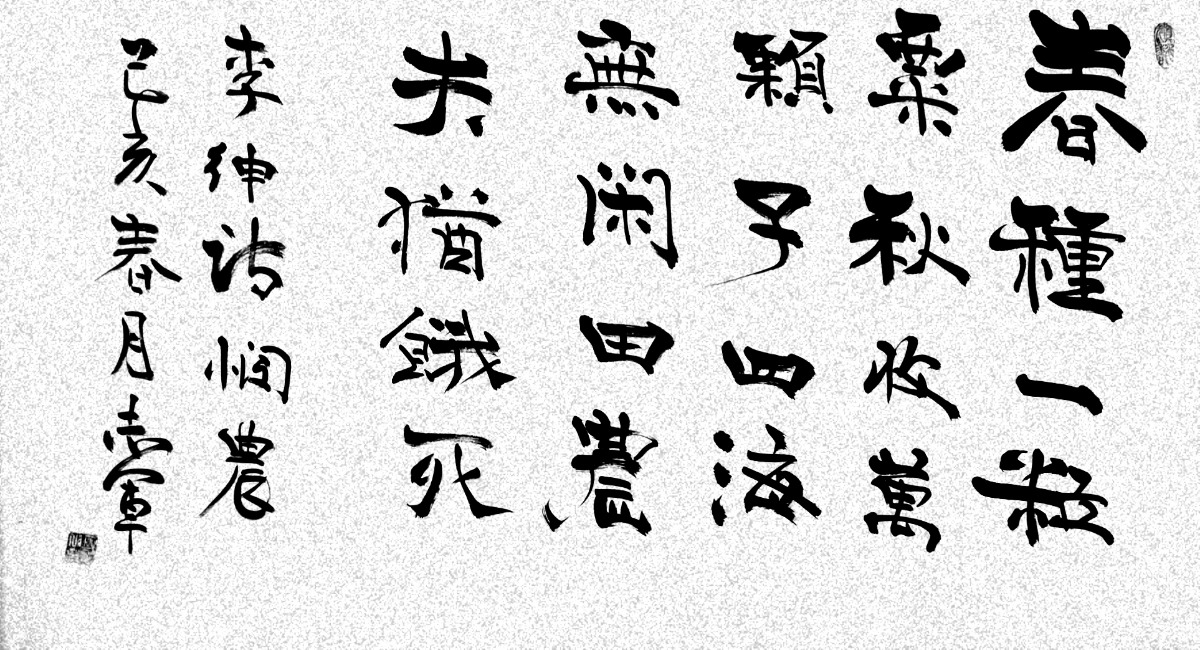 春種一粒
粟秋收萬
顆子四海
無閑田農
夫猶餓死
李紳詩憫農
己亥春月志軍